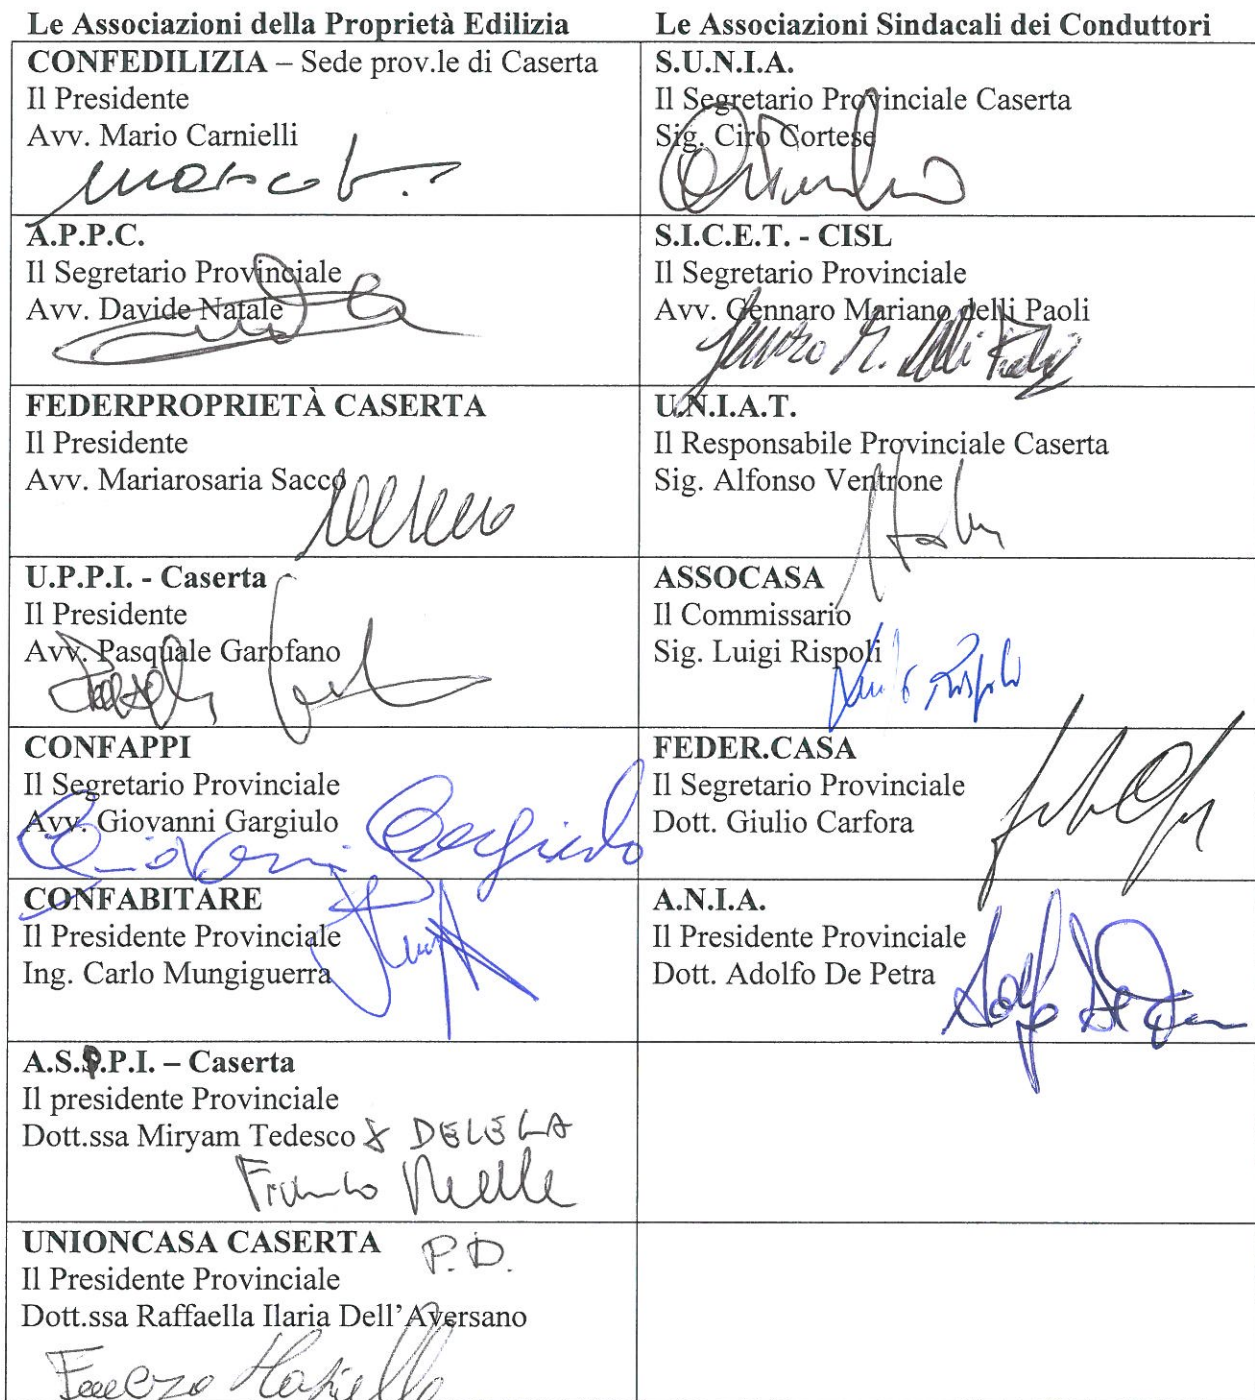 Le Associazioni della Proprietà Edilizia
Le Associazioni Sindacali dei Conduttori
CONFEDILIZIA – Sede prov.le di Caserta
Il Presidente
Avv. Mario Carnielli
S.U.N.I.A.
Il Segretario Provinciale Caserta
Sig. Ciro Cortese
A.P.P.C.
Il Segretario Provinciale
Avv. Davide Natale
S.I.C.E.T. - CISL
Il Segretario Provinciale
Avv. Gennaro Mariano delli Paoli
FEDERPROPRIETÀ CASERTA
Il Presidente
Avv. Mariarosaria Sacco
U.N.I.A.T.
Il Responsabile Provinciale Caserta
Sig. Alfonso Ventrone
U.P.P.I. - Caserta
Il Presidente
Avv. Pasquale Garofano
ASSOCASA
Il Commissario
Sig. Luigi Rispoli
CONFAPPI
Il Segretario Provinciale
Avv. Giovanni Gargiulo
Giovanni Gargiulo
FEDER.CASA
Il Segretario Provinciale
Dott. Giulio Carfora
CONFABITARE
Il Presidente Provinciale
Ing. Carlo Mungiguerra
A.N.I.A.
Il Presidente Provinciale
Dott. Adolfo De Petra
A.S.P.P.I. – Caserta
Il presidente Provinciale
Dott.ssa Miryam Tedesco x DELEGA
UNIONCASA CASERTA P.D.
Il Presidente Provinciale
Dott.ssa Raffaella Ilaria Dell'Aversano